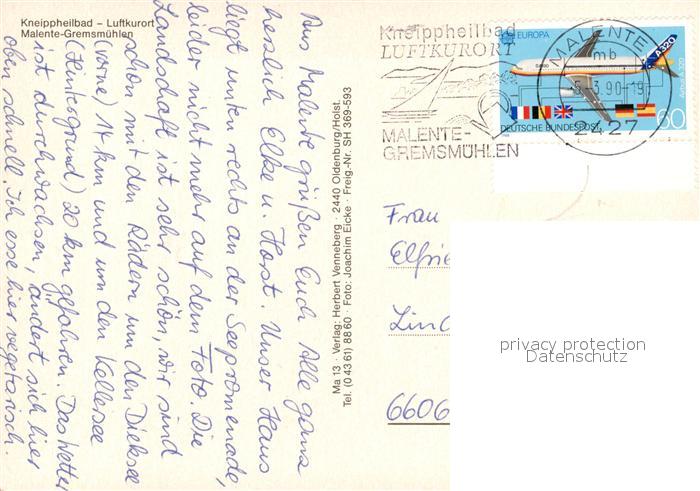 Kneippheilbad – Luftkurort
Malente-Gremsmühlen
Aus Malente grüßen Euch Alle ganz
herzlich Elke u. Horst. Unser Haus
liegt unten rechts an der Seepromenade,
leider nicht mehr auf dem Foto. Die
Landschaft ist sehr schön, wir sind
schon mit den Rädern um den Dieksee
(vorne) 14 km und um den Kellersee
(Hintergrund) 20 km gefahren. Das Wetter
ist durchwachsen, ändert sich hier
eben schnell. Ich esse hier vegetarisch.
Ma 13 · Verlag: Herbert Venneberg · 2440 Oldenburg/Holst.
Tel. (0 43 61) 88 60 · Foto: Joachim Eicke · Freig.-Nr. SH 369-593
Kneippheilbad
LUFTKURORT
MALENTE-
GREMSMÜHLEN
EUROPA
A320
Airbus A 320
DEUTSCHE BUNDESPOST
60
MALENTE
mb
3.90-19
2427
Frau
Elfrie
Lind
6606
privacy protection
Datenschutz